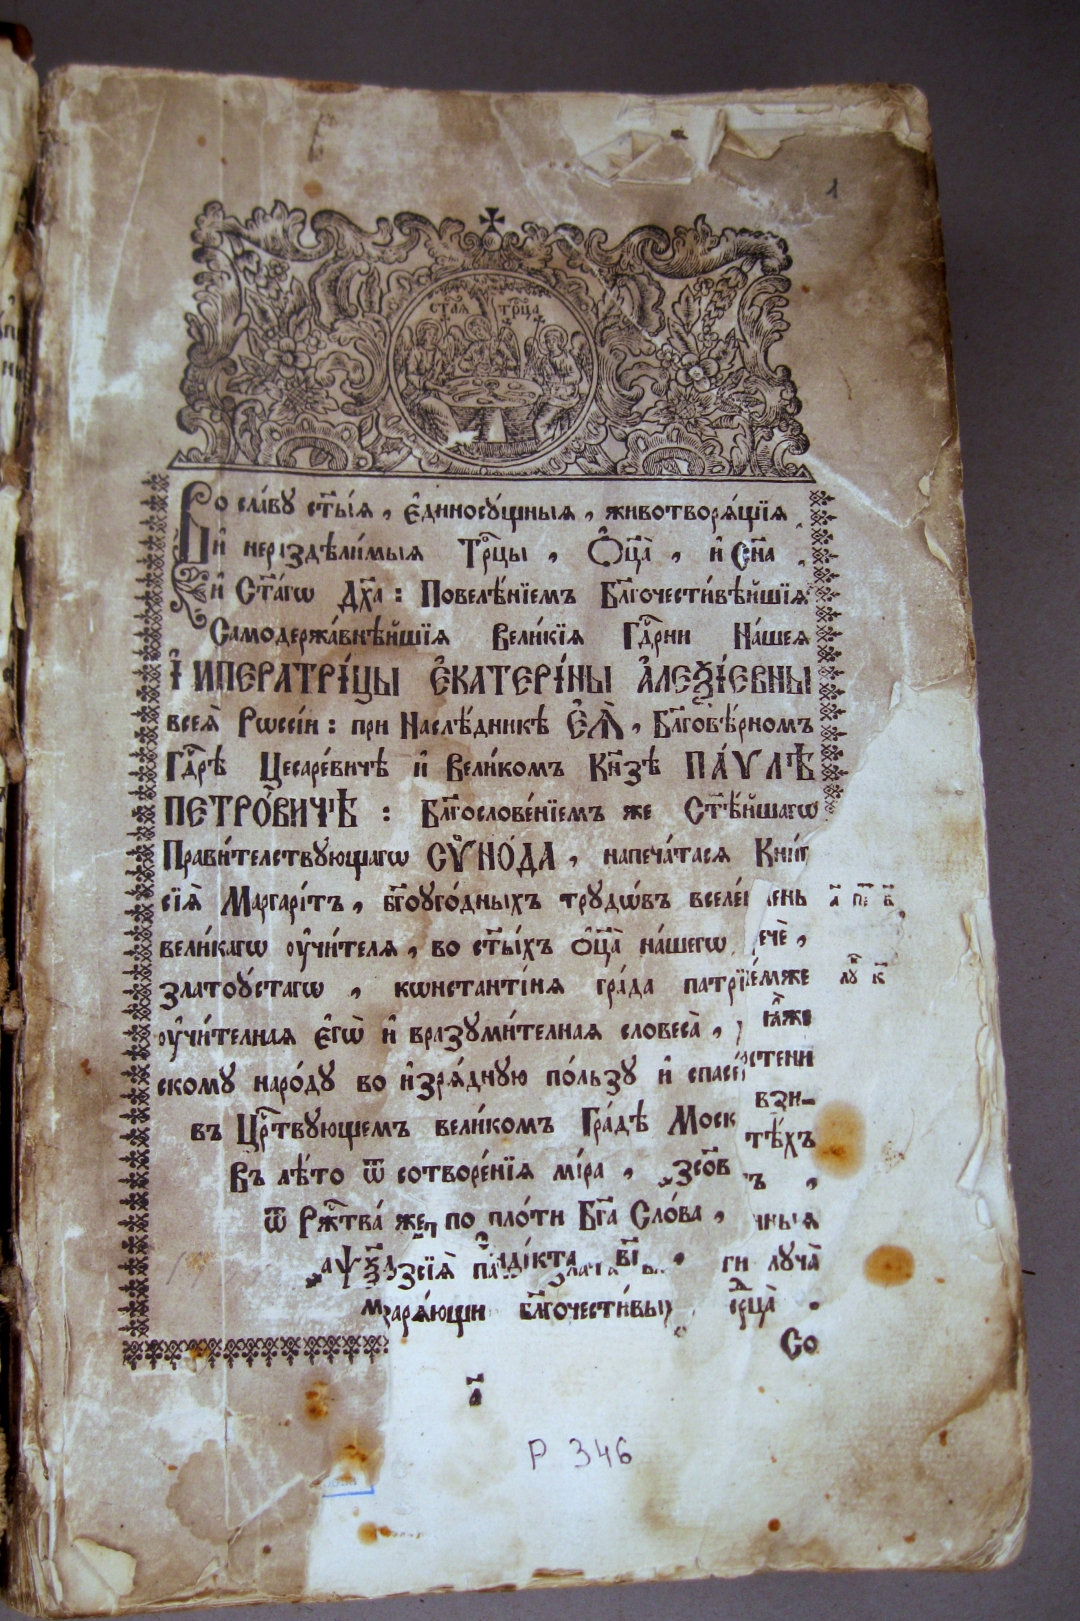 1
ст҃ая трⷪ҇ца
Во сла́вѹ ст҃ы́ѧ , є҆диносѹ́щныѧ , животворѧ́щїѧ
и҆ нераздѣли́мыѧ Трⷪ҇цы , Ѻ҆ц҃а̀ , и҆ Сн҃а
и҆ Ст҃а́гѡ Дх҃а : Повелѣ́нїемъ Бл҃гочести́вѣйшїѧ
Самодержа́внѣйшїѧ Вели́кїѧ Гдⷭ҇рни На́шеѧ
І҆МПЕРАТРІ́ЦЫ Є҆КАТЕРІ́НЫ А҆ЛЕѮІ́ЕВНЫ
всеѧ̀ Рѡссі́и : при Наслѣ́дникѣ Є҆Ѧ̀ , Бл҃говѣ́рномъ
Гдⷭ҇рѣ Цесаре́вичѣ и҆ Вели́комъ Кн҃зѣ ПА́ѴЛѢ
ПЕТРО́ВИЧѢ : Бл҃гослове́нїемъ же Ст҃ѣ́йшагѡ
Прави́телствѹющагѡ СѴ҆НО́ДА , напеча́тасѧ
сїѧ̀ Маргарі́тъ , бг҃оуго́дныхъ трѹдѡ́въ вселе́н лень
вели́кагѡ ѹ҆чи́телѧ , во ст҃ы́хъ ѻ҆ц҃а̀ на́шегѡ ече̑ ,
златоѹ́стагѡ , кѡнстанті́нѧ гра́да патрїе́мже
ѹ҆чи́телнаѧ є҆гѡ̀ и҆ вразѹми́телнаѧ словеса̀ , ꙗ҆́же
скомѹ наро́дѹ во и҆зрѧ́днѹю по́льзѹ и҆ спасе́ стени
взи-
въ Црⷭ҇твѹющемъ вели́комъ Гра́дѣ Моск тѣ́хъ
Въ лѣ́то ѿ сотворе́нїѧ мі́ра , ҂зсо̃в ъ ,
ѿ Ржⷭ҇тва́ же по пло́ти Бг҃а Сло́ва , ныѧ
҂аѱѯ҃д сїѧ̀ і҆нді́кта в҃і , ги лѹча̀
ѡзарѧ́ющи бл҃гочести́выхъ срⷣца̀ .
Со
а҃
Р 346